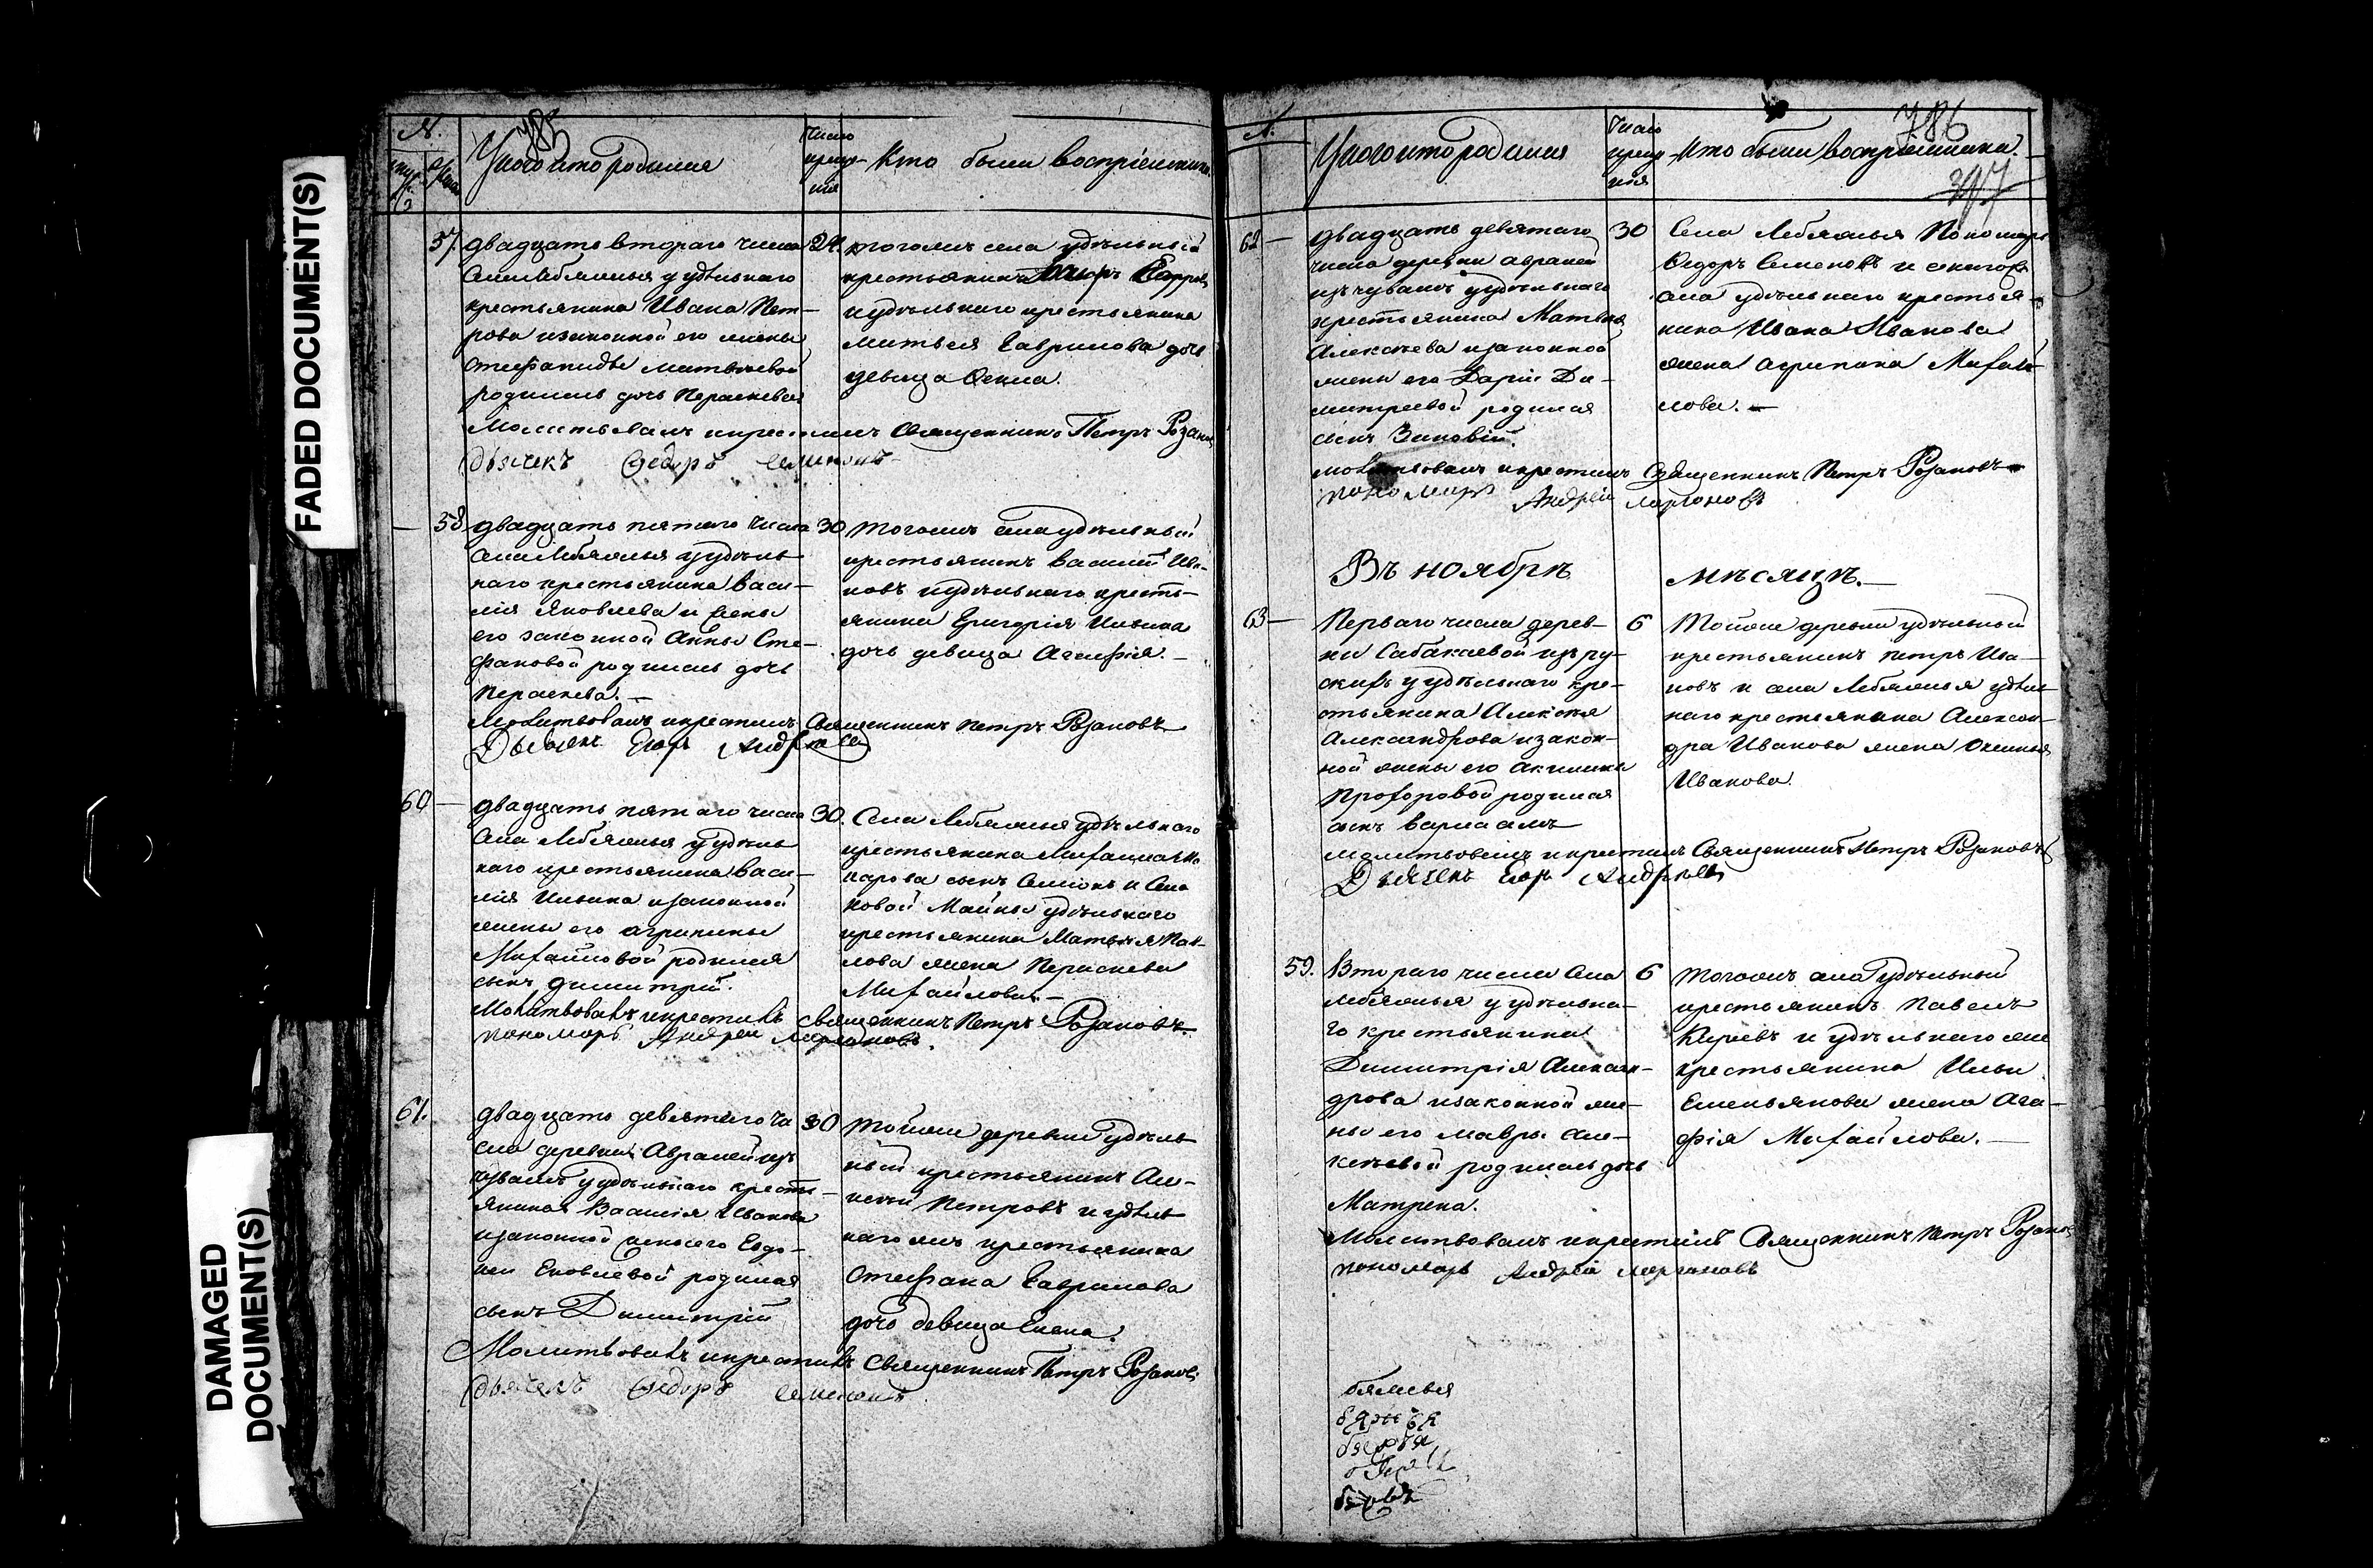 FADED DOCUMENT(S)
DAMAGED
DOCUMENT(S)
№.
785
У кого кто родился
число
креще-
ния
Кто были восприемники.
57. двадцать втораго числа
села Лебяжья у удѣльнаго
крестьянина Ивана Пет-
рова и законной его жены
Стефаниды Матвѣевой
родилась дочь Параскева
24. тогожъ села удѣльный
крестьянинъ
и удѣльнаго крестьянина
Матвея Гаврилова дочь
девица Фекла.
Молитвовалъ и крестилъ Священникъ Петръ Розановъ
дьячекъ Федоръ Семеновъ
58 двадцать пятаго числа
села Лебяжья у удѣль-
наго крестьянина Васи-
лія Яковлева и жены
его законной Анны Сте-
фановой родилась дочь
Параскева. —
30 тогожъ села удѣльный
крестьянинъ Василий Ива-
новъ и удѣльнаго кресть-
янина Григорія Ильина
дочь девица Агафія. —
Молитвовалъ и крестилъ Священникъ Петръ Розановъ
Дьячекъ Егоръ Андреев
60 — двадцать пятаго числа
села Лебяжья у удѣль-
наго крестьянина Васи-
лія Ильина и законной
жены его Агрипины
Михайловой родился
сынъ Димитрій.
30. Села Лебяжья удѣльнаго
крестьянина Михаила Ма-
карова сынъ Семионъ и Села
Новой Майны удѣльнаго
крестьянина Матвѣя Пав-
лова жена Параскева
Михайлова. —
Молитвовалъ и крестилъ священникъ Петръ Розановъ
пономарь Андрей Ларионовъ.
61. двадцать девятаго чи
сла деревни Авралей изъ
чувашъ у удѣльнаго кресть-
янина Василія Иванова
и законной жены его Евдо-
кеи Яковлевой родился
сынъ Димитрій
30 Тойже деревни удѣль-
ный крестьянинъ Але-
ксѣй Петровъ и удѣль-
наго жъ крестьянина
Стефана Гаврилова
дочь девица Елена.
Молитвовалъ и крестилъ Священникъ Петръ Розановъ
дьячекъ Федоръ Семеновъ
№.
786
397
У кого кто родился
Число
креще-
ния
Кто были восприемники.
62 — двадцать девятаго
числа деревни Авралей
изъ чувашъ у удѣльнаго
крестьянина Матвея
Алексѣева и законной
жены его Дарьи Ди-
митреевой родился
сынъ Зиновій.
30 Села Лебяжья Пономарь
Федоръ Семеновъ и
села удѣльнаго крестья-
нина Ивана Иванова
жена Агрипина Михай-
лова. —
молитвовалъ и крестилъ Священникъ Петръ Розановъ
пономарь Андрей Ларионовъ
Въ ноябрѣ мѣсяцѣ. —
63 — Перваго числа дерев-
ни Сабакаевой изъ ру-
скихъ у удѣльнаго кре-
стьянина Алексѣя
Александрова и закон-
ной жены его Акилины
Прохоровой родился
сынъ Варлаамъ
6 Тойже деревни удѣльной
крестьянинъ Петръ Ива-
новъ и села Лебяжья удѣль-
наго крестьянина Алексан-
дра Иванова жена
Иванова.
Молитвовалъ и крестилъ Священникъ Петръ Розановъ
Дьячекъ Егоръ Андреевъ
59. Втораго числа Села
Лебяжья у удѣльна-
го крестьянина
Димитрія Алексан-
дрова и законной же-
ны его Мавры Але-
ксѣевой родилась дочь
Матрена.
6 Тогожъ села удѣльный
крестьянинъ Павелъ
Киреевъ и удѣльнаго же
крестьянина Ильи
Емельянова жена Ага-
фія Михайлова. —
Молитвовалъ и крестилъ Священникъ Петръ Розановъ
пономарь Андрей Ларионовъ
бяжья